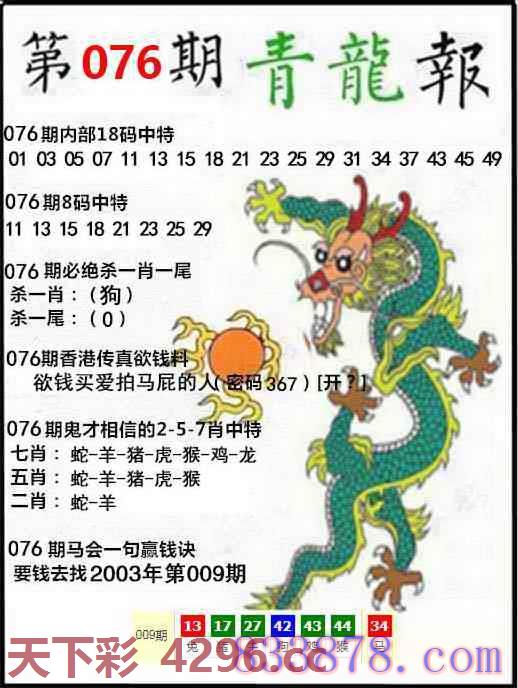 第076期 青龍報
076期内部18码中特
01 03 05 07 11 13 15 18 21 23 25 29 31 34 37 43 45 49
076期8码中特
11 13 15 18 21 23 25 29
076期必绝杀一肖一尾
杀一肖：(狗)
杀一尾：(0)
076期香港传真欲钱料
欲钱买爱拍马屁的人(密码367)[开?]
076期鬼才相信的2-5-7肖中特
七肖：蛇-羊-猪-虎-猴-鸡-龙
五肖：蛇-羊-猪-虎-猴
二肖：蛇-羊
076期马会一句赢钱诀
要钱去找2003年第009期
009期 13 17 27 42 43 44 34
兔 狗 猴 马
天下彩 4296.cc
833878.com